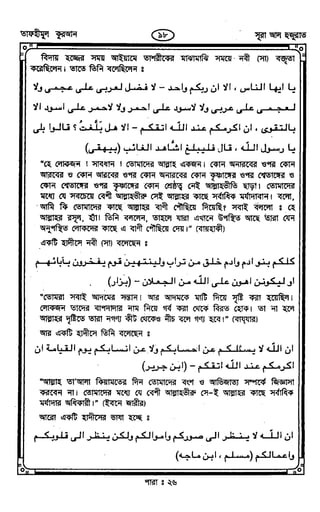 তাফহীমুল কুরআন
১৮
সূরা আল হুজুরাত
বিদায় হজ্জের সময় আইয়ামে তাশরীকের মাঝামাঝি সময়ে নবী (সা) বক্তৃতা
করেছিলেন। তাতে তিনি বলেছিলেন ঃ
يا ايها الناس ، الا ان ربكم واحد - لا فضل لعربى على عجمى ولا
لعجمى على عربى ولا لاسود على احمر ولا لاحمر على اسود الا
بالتقوى ، ان اكرمكم عند الله اتقكم - الا هل بلغت؟ قالوا بلى
يا رسول الله ، قال فليبلغ الشاهد الغائب (بيهقى)
"হে লোকজন! সাবধান! তোমাদের আল্লাহ একজন। কোন অনারবের ওপর কোন
আরবের ও কোন আরবের ওপর কোন অনারবের কোন কৃষ্ণাঙ্গের ওপর শ্বেতাঙ্গের ও
কোন শ্বেতাঙ্গের ওপর কৃষ্ণাঙ্গের কোন শ্রেষ্ঠত্ব নেই আল্লাহভীতি ছাড়া। তোমাদের
মধ্যে যে সবচেয়ে বেশী আল্লাহভীরু সেই আল্লাহর কাছে সর্বাধিক মর্যাদাবান। বলো,
আমি কি তোমাদের কাছে আল্লাহর বাণী পৌছিয়ে দিয়েছি? সবাই বললো ঃ হে
আল্লাহর রসূল, হাঁ। তিনি বললেন, তাহলে যারা এখানে উপস্থিত আছে তারা যেন
অনুপস্থিত লোকদের কাছে এ বাণী পৌছিয়ে দেয়।" (বায়হাকী)
একটি হাদীসে নবী (সা) বলেছেন ঃ
كلكم بنو ادم وادم خلق من تراب ولينتهين قوم يفخرون بابائهم
او ليكونن اهون على الله من الجعلان - (بزار)
"তোমরা সবাই আদমের সন্তান। আর আদমকে মাটি দিয়ে সৃষ্টি করা হয়েছিল।
লোকজন তাদের বাপদাদার নাম নিয়ে গর্ব করা থেকে বিরত হোক। তা না হলে
আল্লাহর দৃষ্টিতে তারা নগণ্য কীট থেকেও নীচ বলে গণ্য হবে।" (বাযযার)
আর একটি হাদীসে তিনি বলেছেন ঃ
ان الله لا يسئلكم عن احسابكم ولا عن انسابكم يوم القيامة ان
اكرمكم عند الله اتقكم - (ابن جرير)
"আল্লাহ তা'আলা কিয়ামতের দিন তোমাদের বংশ ও আভিজাত্য সম্পর্কে জিজ্ঞাসা
করবেন না। তোমাদের মধ্যে যে বেশী আল্লাহভীরু সে-ই আল্লাহর কাছে সর্বাধিক
মর্যাদার অধিকারী।" (ইবনে জারীর)
আরো একটি হাদীসের ভাষা হচ্ছে ঃ
ان الله لا ينظر الى صوركم واموالكم ولكن ينظر الى قلوبكم
واعمالكم (مسلم ، ابن ماجه)
পারা ঃ ২৬